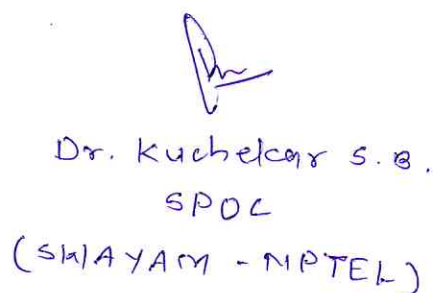 Dr. Kuchekar S. B.
SPOC
(SWAYAM - NPTEL)